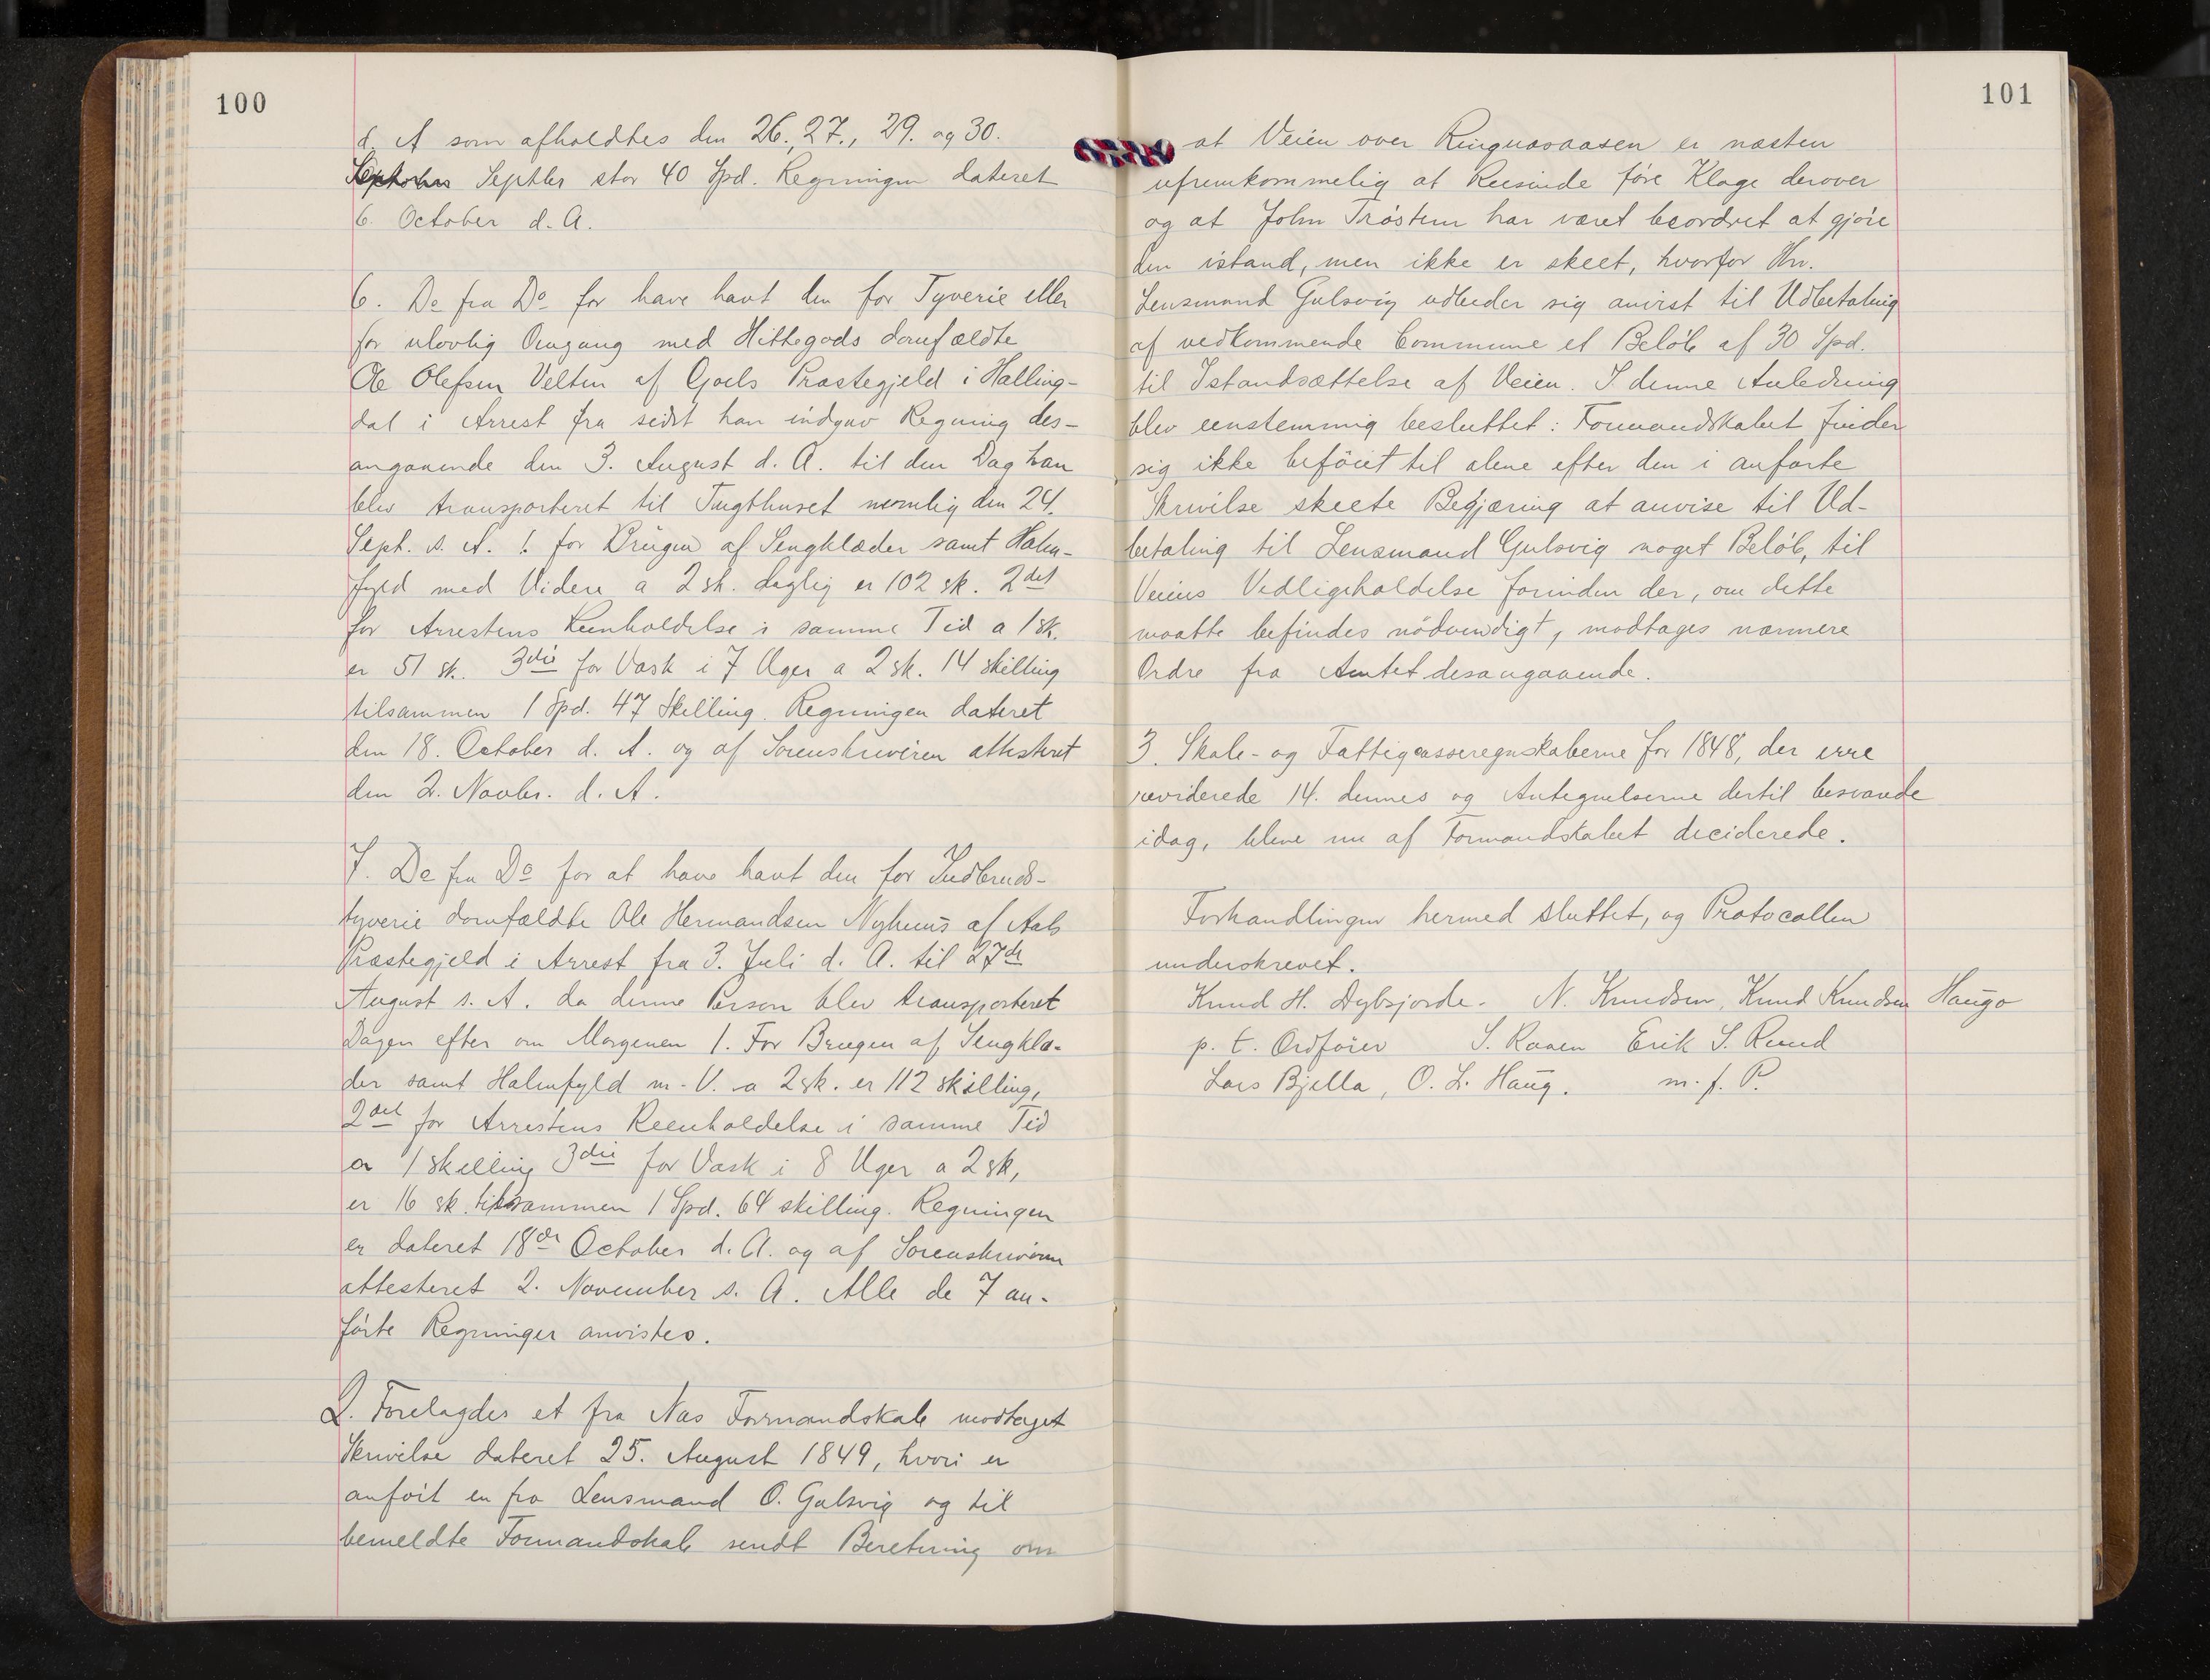 100
d. A som afholdtes den 26., 27., 29. og 30.
Septbr stor 40 Spd. Regningen dateret
6. October d. A.
6. De fra Do for have havt den for Tyverie eller
for ulovlig Omgang med Hittegods domfældte
Ole Olefsen Velten af Goels Præstegjeld i Halling-
dal i Arrest fra sidst han indgav Regning des-
angaaende den 3. August d. A. til den Dag han
blev transporteret til Tugthuset nemlig den 24.
Sept. s. A. 1. for Brugen af Sengklæder samt Halm-
fyld med Videre a 2 sk. daglig er 102 sk. 2det
for Arrestens Reenholdelse i samme Tid a 1 sk.
er 51 sk. 3die for Vask i 7 Uger a 2 sk. 14 skilling
tilsammen 1 Spd. 47 Skilling. Regningen dateret
den 18. October d. A. og af Sorenskriveren attesteret
den 2. Novbr. d. A.
7. De fra Do for at have havt den for Indbruds-
tyverie domfældte Ole Hermandsen Nyhuus af Aals
Præstegjeld i Arrest fra 3. Juli d. A. til 27de
August s. A. da denne Person blev transporteret
Dagen efter om Morgenen 1. For Brugen af Sengklæ-
der samt Halmfyld m. V. a 2 sk. er 112 skilling,
2det for Arrestens Reenholdelse i samme Tid
a 1 skilling 3die for Vask i 8 Uger a 2 sk,
er 16 sk. tilsammen 1 Spd. 64 skilling. Regningen
er dateret 18de October d. A. og af Sorenskriveren
attesteret 2. November s. A. Alle de 7 an-
førte Regninger anvistes.
2. Forelagdes et fra Næs Formandskab modtaget
Skrivelse dateret 25. August 1849, hvori er
anført en fra Lensmand O. Gulsvig og til
bemeldte Formandskab sendt Beretning om
101
at Veien over Ringnæsaasen er næsten
ufremkommelig at Reisende føre Klage derover
og at John Trøstem har været beordret at gjøre
den istand, men ikke er skeet, hvorfor Hr.
Lensmand Gulsvig udbeder sig anvist til Udbetaling
af vedkommende Commune et Beløb af 30 Spd.
til Istandsættelse af Veien. I denne Anledning
blev eenstemmig besluttet: Formandskabet finder
sig ikke beføiet til alene efter den i anførte
Skrivelse skeete Begjæring at anvise til Ud-
betaling til Lensmand Gulsvig noget Beløb, til
Veiens Vedligeholdelse forinden der, om dette
maatte befindes nödvendigt, modtages nærmere
Ordre fra Amtet desangaaende.
3. Skole- og Fattigcasseregnskaberne for 1848, der erre
reviderede 14. dennes og Antegnelserne dertil besvarede
idag, bleve nu af Formandskabet deciderede.
Forhandlingen hermed sluttet, og Protocollen
underskrevet.
Knud H. Dybsjorde. N. Knudsen, Knud Knudsen Haugo
p. t. Ordfører S. Raaen Erik S. Ruud
Lars Bjella, O. L. Haug. m. f. P.